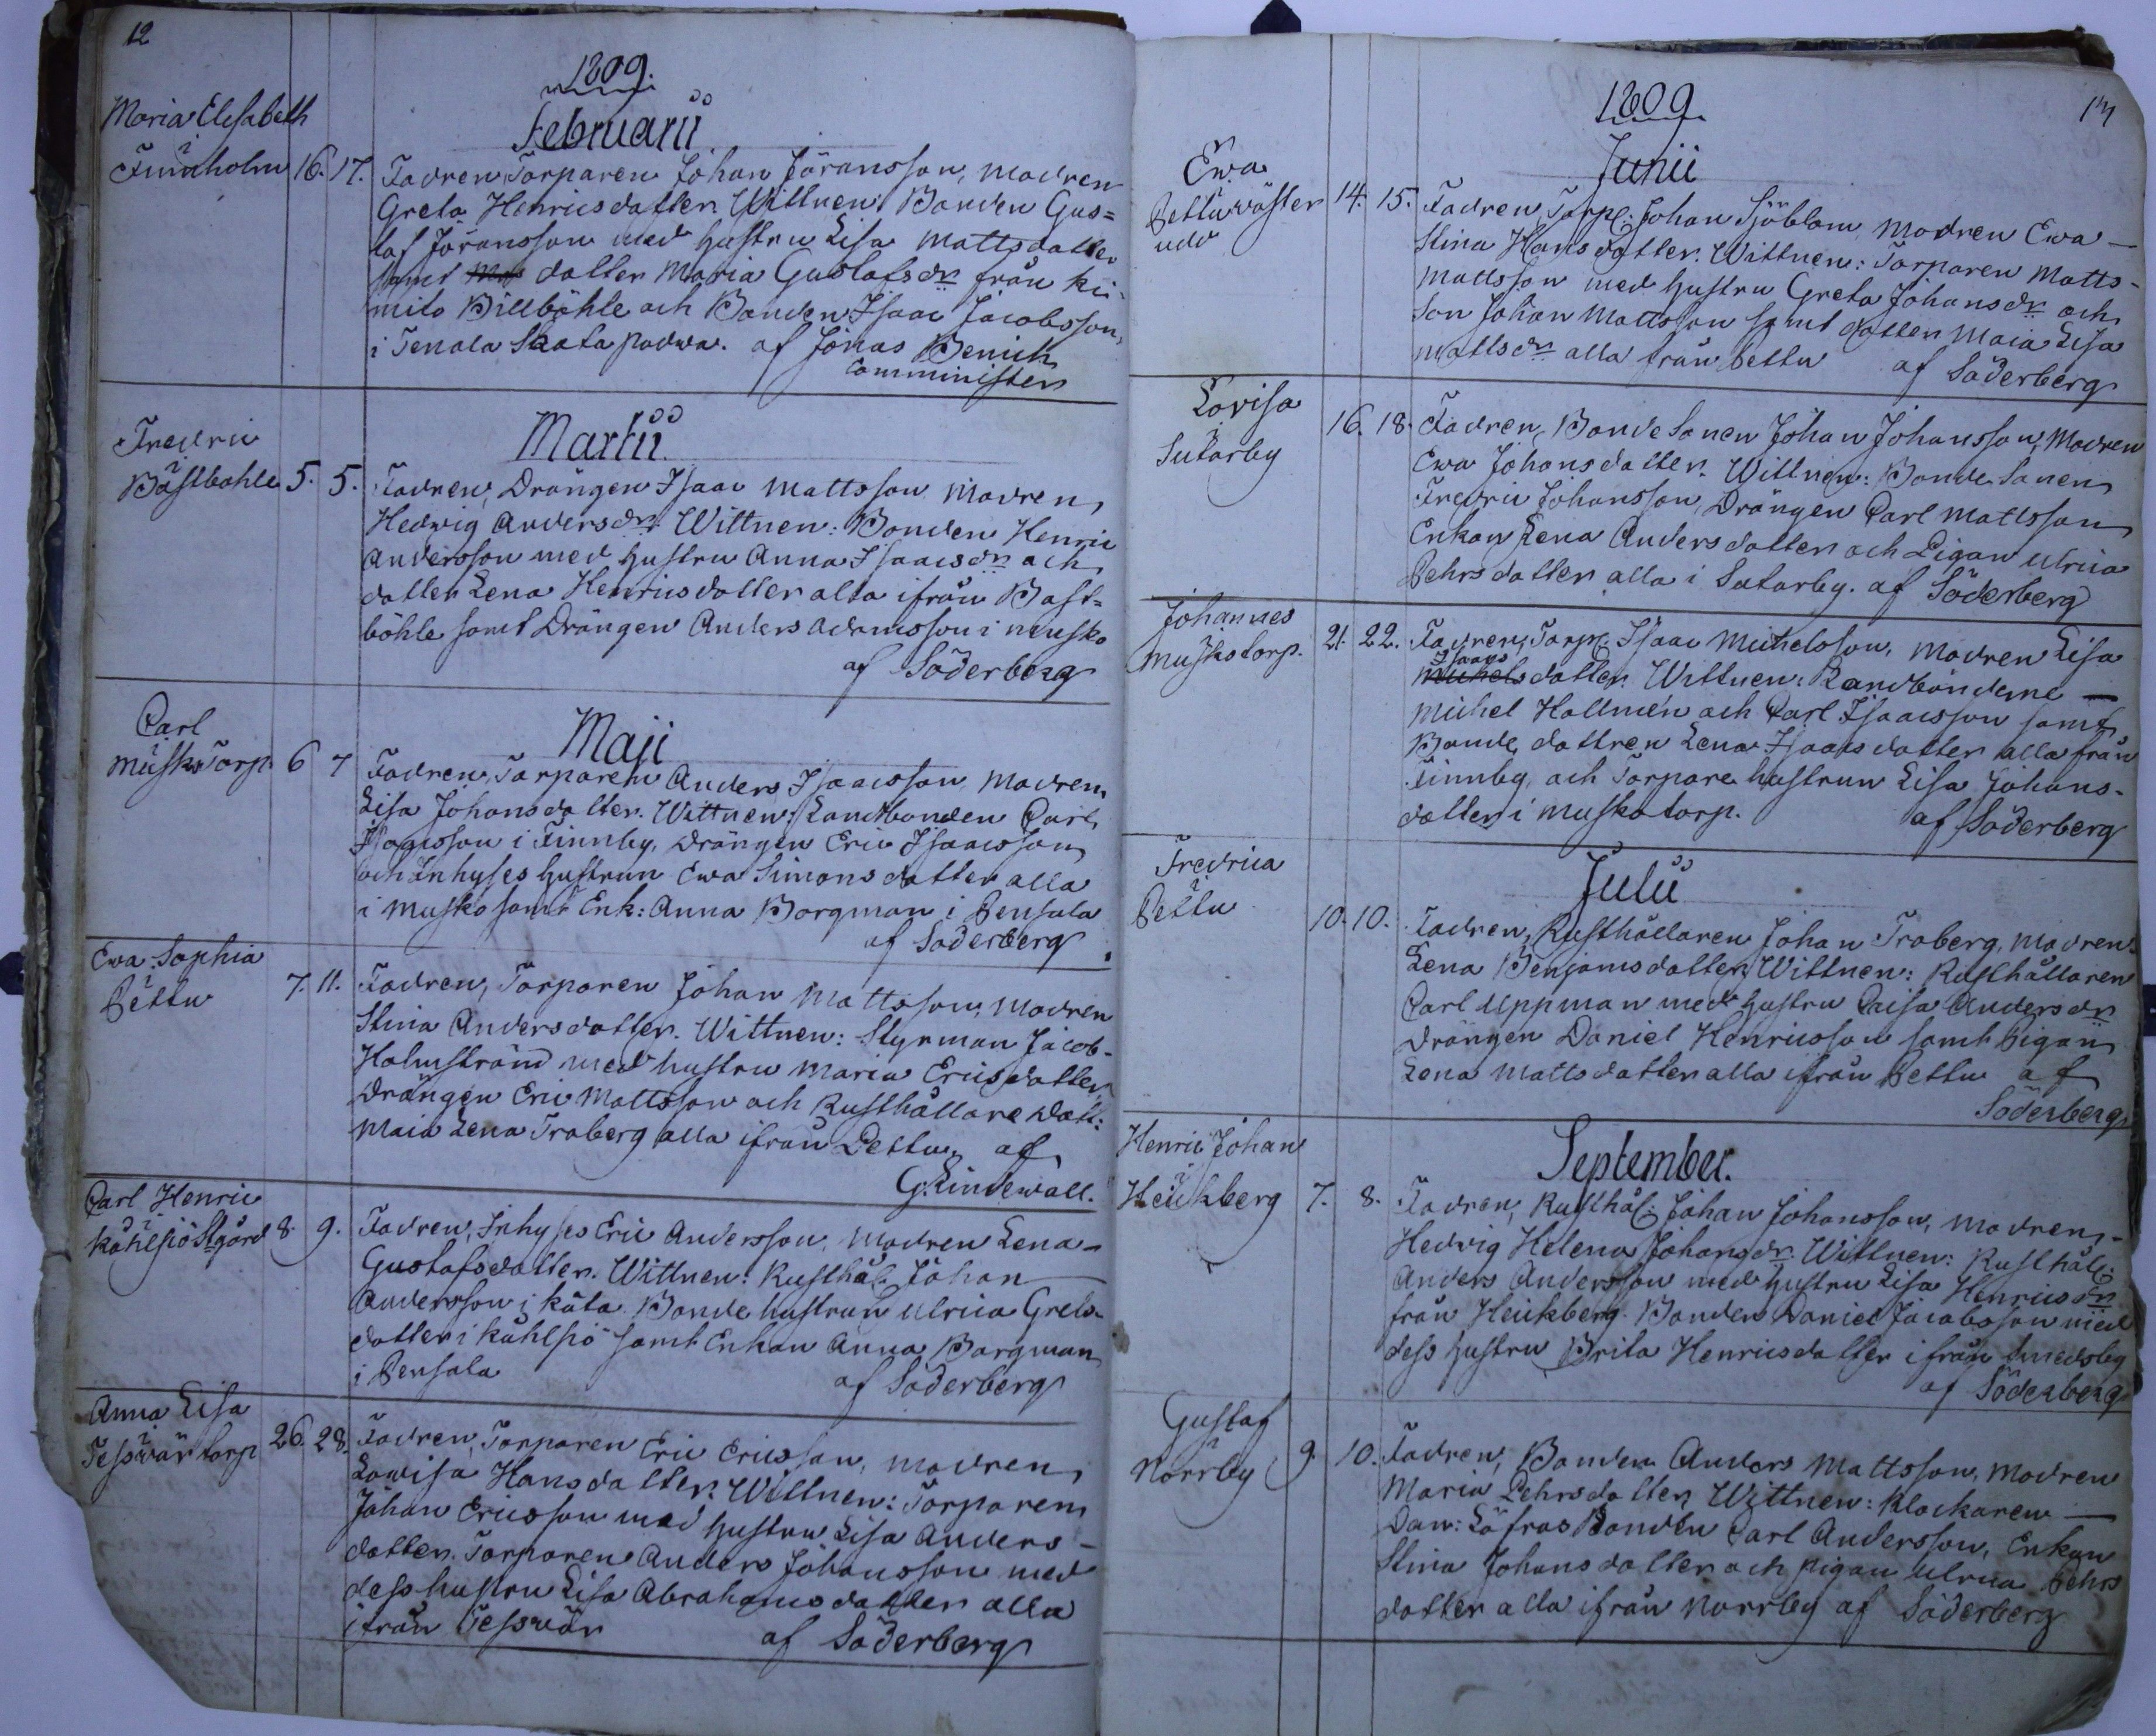 12
1809.
Februarii
Maria Elisabeth
i
Finnholm 16. 17. Fadren, Torparen Johan Jöransson, modren
Greta Henricsdotter. Wittnen: Bonden Gus=
taf Jöransson med hustru Lisa Mattsdotter
samt dotter Maria Gustafsdr från Ki-
mito Billböhle och Bonden Isaac Jacobsson
i Tenala Skata padwa. af Jonas Benich
Comminister
Martii
Fredric
i
Bastböhle 5. 5. Fadren, Drängen Isaac Mattsson Modren,
Hedwig Andersdr. Wittnen: Bonden Henric
Andersson med hustru Anna Isaacsdr och
dotter Lena Henricsdotter alla ifrån Bast=
böhle samt Drängen Anders Adamsson i Musko
af Söderberg
Maji
Carl
i
Musko Torp. 6 7 Fadren, Torparen Anders Isaacsson, Modren
Lisa Johansdotter. Wittnen: Landbonden Carl
Isaacsson i Finnby, Drängen Eric Isaacsson
och Inhyses hustrun Ewa Simonsdotter alla
i Musko samt Enk: Anna Borgman i Pensala
af Söderberg
Ewa Sophia
i
Pettu 7. 11. Fadren, Torparen Johan Mattsson, Modren
Stina Andersdotter. Wittnen: Styrman Jacob
Holmstränd med hustru Maria Ericsdotter
Drängen Eric Mattsson och Rusthållare dott:
Maia Lena Troberg alla ifrån Pettu, af
G. Lindewall.
Carl Henric
i
Kåhlsiö Stgård 8. 9. Fadren, Inhyses Eric Andersson, Modren Lena
Gustafsdotter. Wittnen: Rusthål: Johan
Andersson i Kåta Bonde hustrun Ulrica Grels-
dotter i Kåhlsiö samt Enkan Anna Borgman
i Pensala af Söderberg
Anna Lisa
i
Tesswär torp 26. 28. Fadren, Torparen Eric Ericsson, modren,
Lowisa Hansdotter. Wittnen: Torparen
Johan Ericsson med hustru Lisa Anders-
dotter. Torparen Anders Johansson med
dess hustru Lisa Abrahamsdotter alla
ifrån Tesswär af Söderberg
1809.
Junii
Ewa
i
Pettu wäster
udd 14. 15. Fadren, Torp: Johan Sjöblom, Modren Ewa
Stina Hansdotter. Wittnen: Torparen Matts
Mattsson med hustru Greta Johansdr och
Son Johan Mattsson samt dotter Maia Lisa
Mattsdr alla från Pettu af Söderberg
Lovisa
i
Sutarby 16. 18. Fadren, Bonde Sonen Johan Johansson, Modren
Ewa Johansdotter. Wittnen: Bonde Sonen
Fredric Johansson, Drängen Carl Mattsson
Enkan Lena Andersdotter och Pigan Ulrica
Pehrsdotter alla i Sutarby. af Söderberg
Johannes
i
Muskotorp. 21. 22. Fadren, Torp: Isaac Michelsson, Modren Lisa
Isaacs
Michels dotter. Wittnen: Landbönderne
Michel Hollmén och Carl Isaacsson samt
Bonde dottren Lena Isaacsdotter alla från
Finnby, och Torpare hustrun Lisa Johans-
dotter i Muskotorp. af Söderberg
Julii
Fredrica
i
Pettu 10. 10. Fadren, Rusthållaren Johan Troberg, Modren
Lena Benjamsdotter. Wittnen: Rusthållaren
Carl Uppman med hustru Caisa Andersdr
Drängen Daniel Henricsson samt Pigan
Lena Mattsdotter alla ifrån Pettu af
Söderberg
September.
Henric Johan
i
Heickberg 7. 8. Fadren, Rusthål: Johan Johansson, Modren
Hedvig Helena Johansdr. Wittnen: Rusthål:
Anders Andersson med hustru Lisa Henricsdr
från Heickberg. Bonden Daniel Jacobsson med
dess hustru Brita Henricsdotter ifrån Smedsby
af Söderberg
Gustaf
i
Norrby 9. 10. Fadren, Bonden Anders Mattsson, Modren
Maria Pehrsdotter. Wittnen: Klockaren
Dan: Löfros Bonden Carl Andersson, Enkan
Stina Johansdotter och pigan Ulrica Pehrs
dotter alla ifrån Norrby af Söderberg